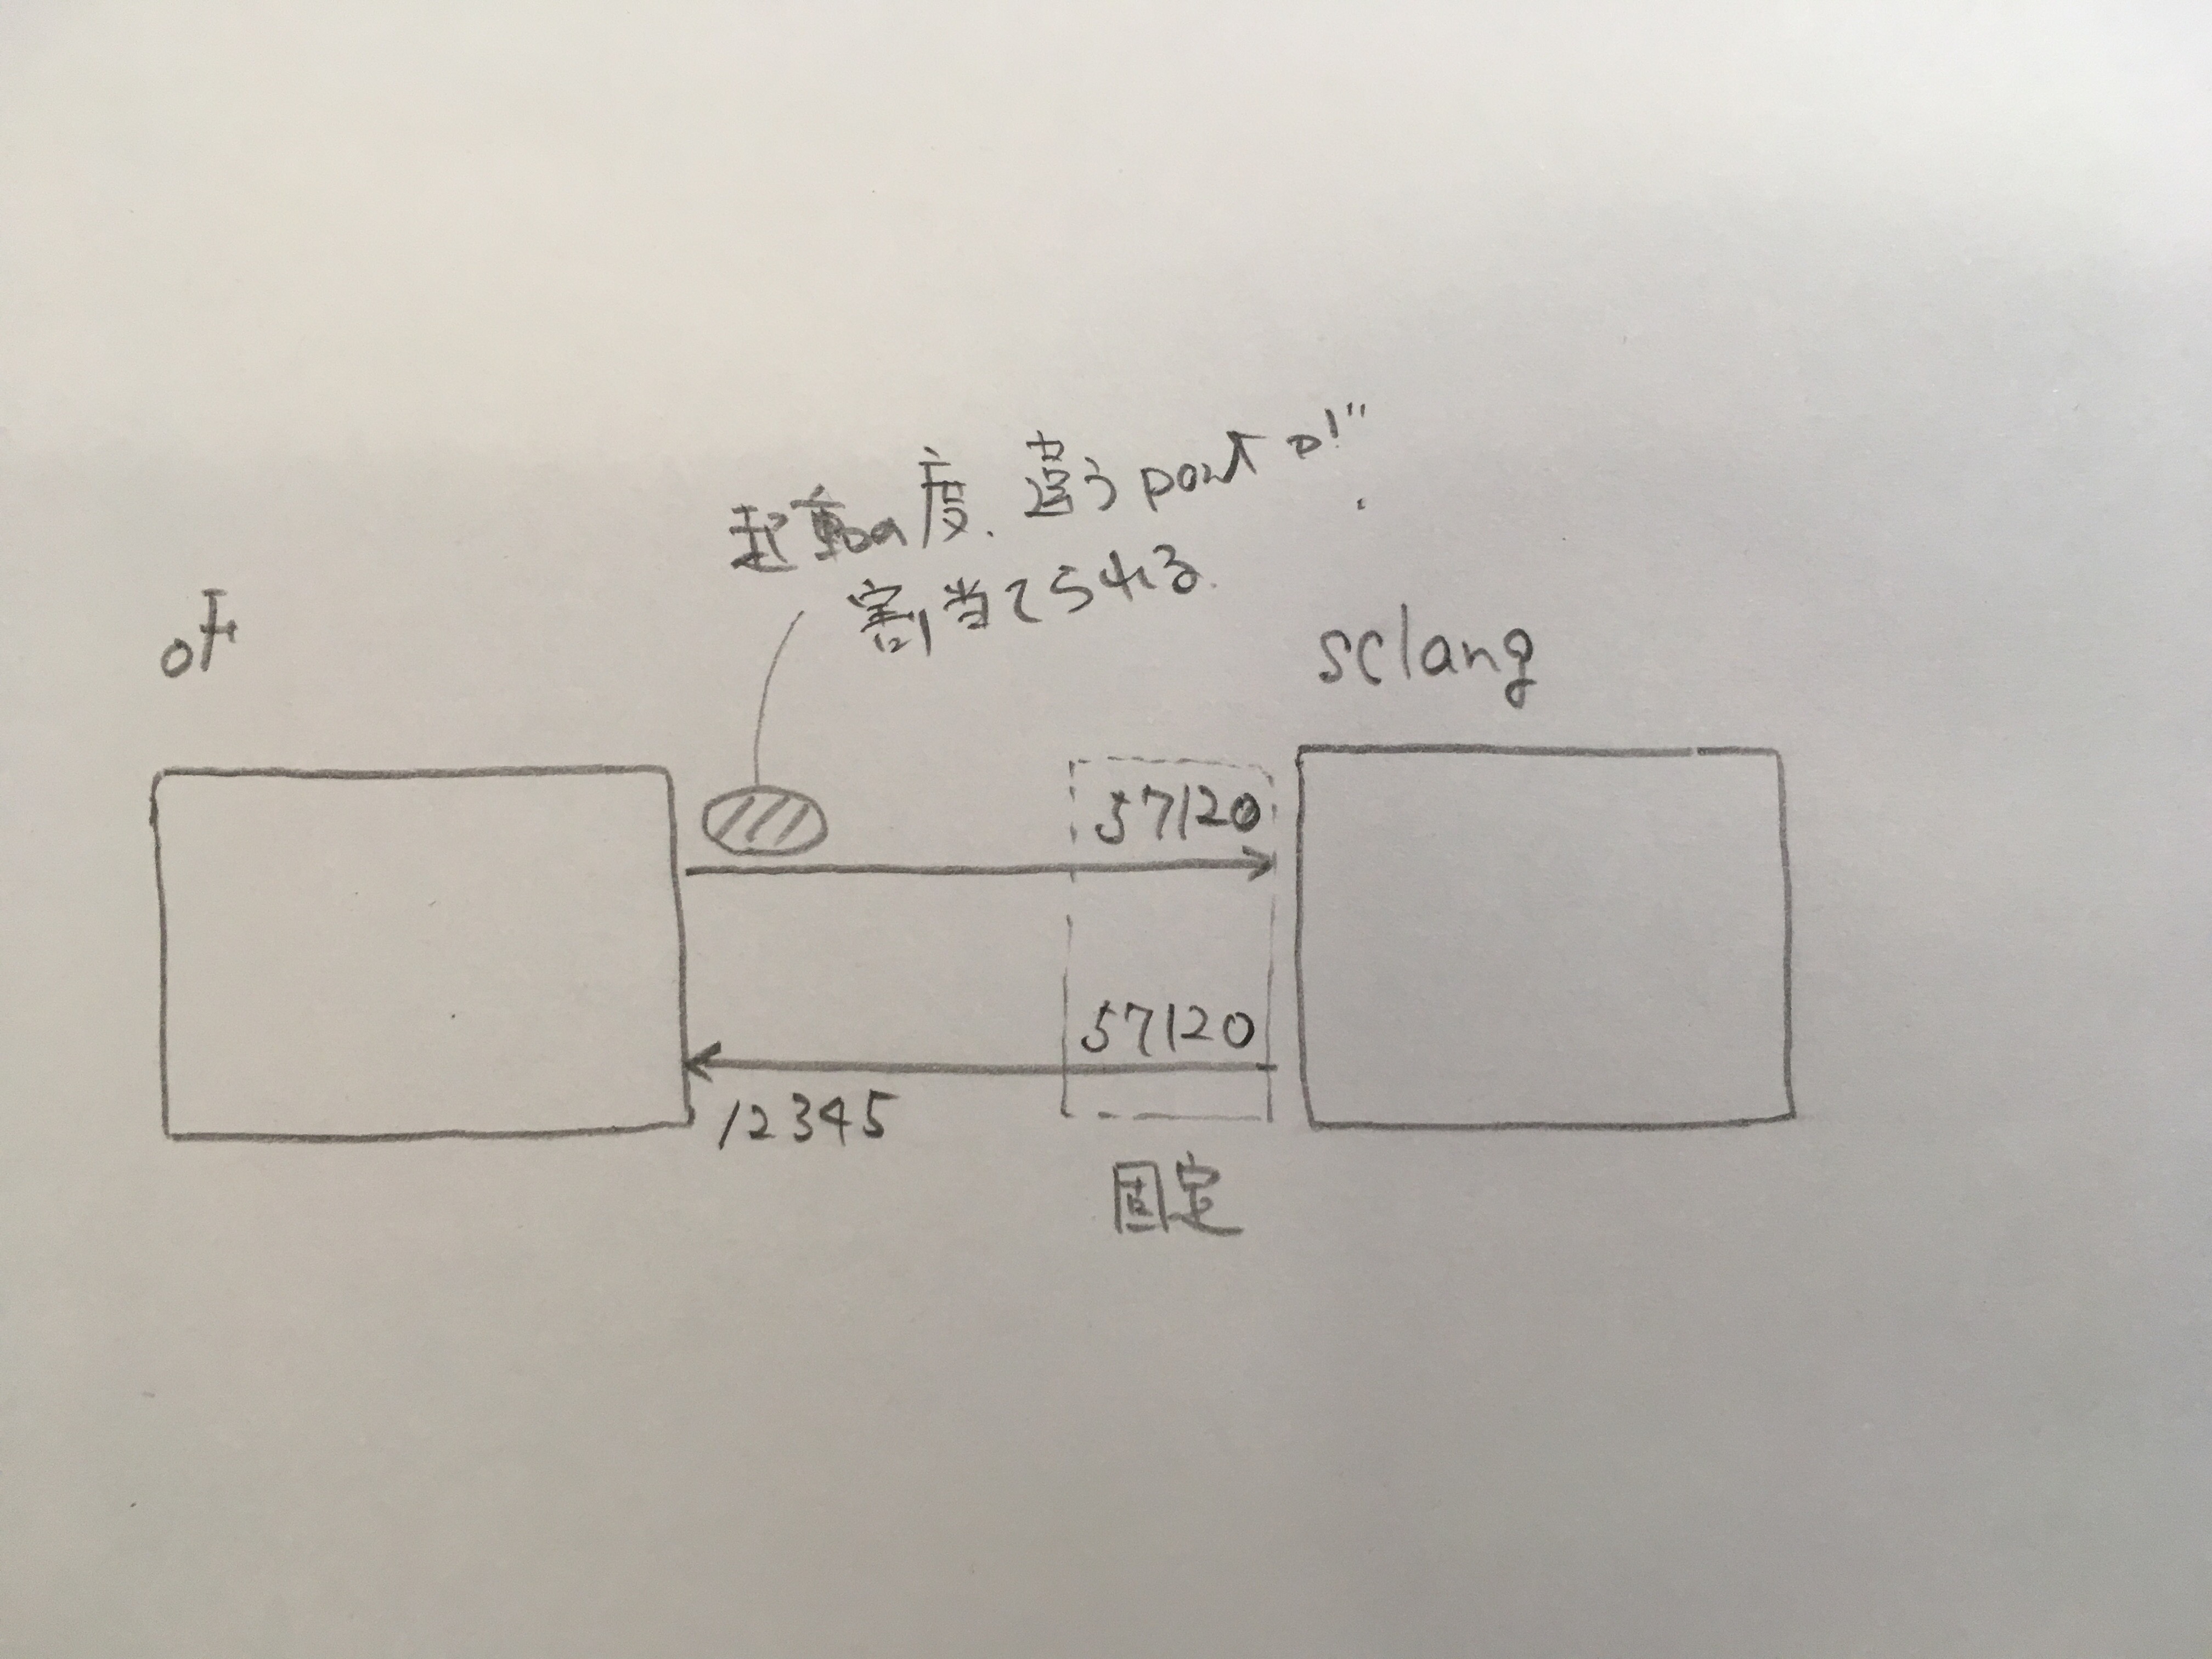 起動の度、違うportが
割当てられる.
of
sclang
57120
57120
12345
固定